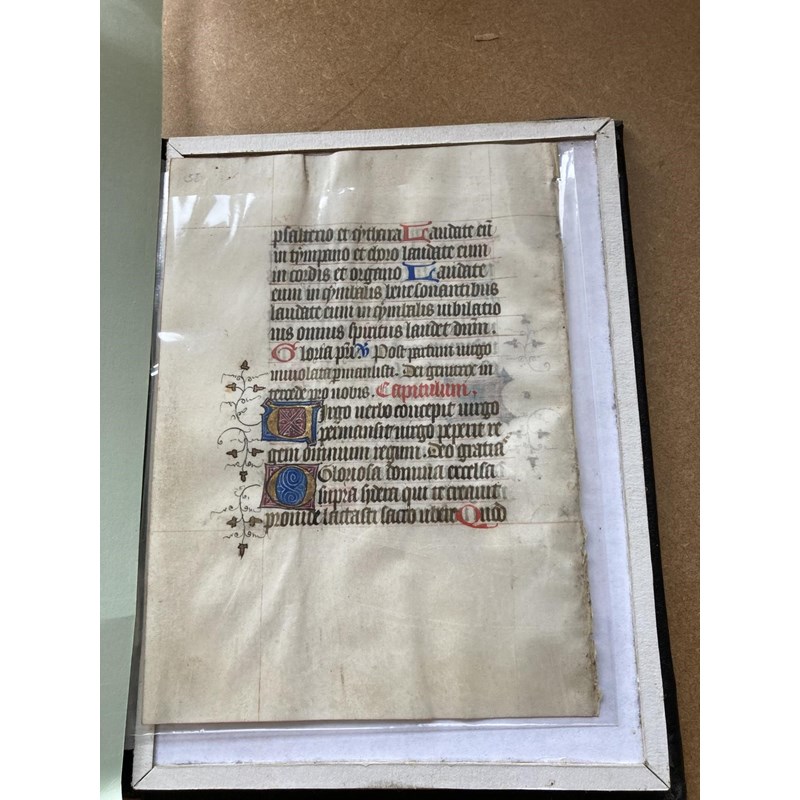 psalterio et cythara Laudate eū
in tympano et choro laudate eum
in cordis et organo Laudate
eum in cymbalis bene sonantibus
laudate eum in cymbalis iubilatio
nis omnis spiritus laudet dn̄m.
Gloria pr̄i. Post partum uirgo
inuiolata permansisti. Dei genitrix in
tercede pro nobis. Capitulum.
Uirgo uerbo concepit uirgo
permansit uirgo peperit re
gem omnium regum. Deo gratia
O Gloriosa domina excelsa
supra sydera qui te creauit
prouide lactasti sacro ubere Quod